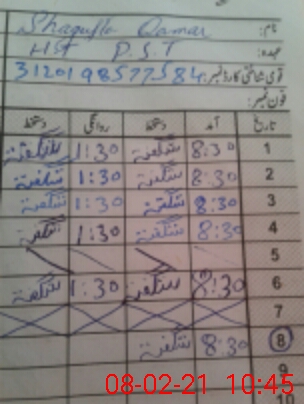 نام: Shagufta Qamar
عہدہ: HST P.S.T
قومی شناختی کارڈ نمبر: 3120198577584
فون نمبر:
تاریخ آمد دستخط روانگی دستخط
1 8:30 شگفتہ 1:30 شگفتہ
2 8:30 شگفتہ 1:30 شگفتہ
3 8:30 شگفتہ 1:30 شگفتہ
4 8:30 شگفتہ 1:30 شگفتہ
5
6 8:30 شگفتہ 1:30 شگفتہ
7
8 8:30 شگفتہ
9
10
08-02-21 10:45